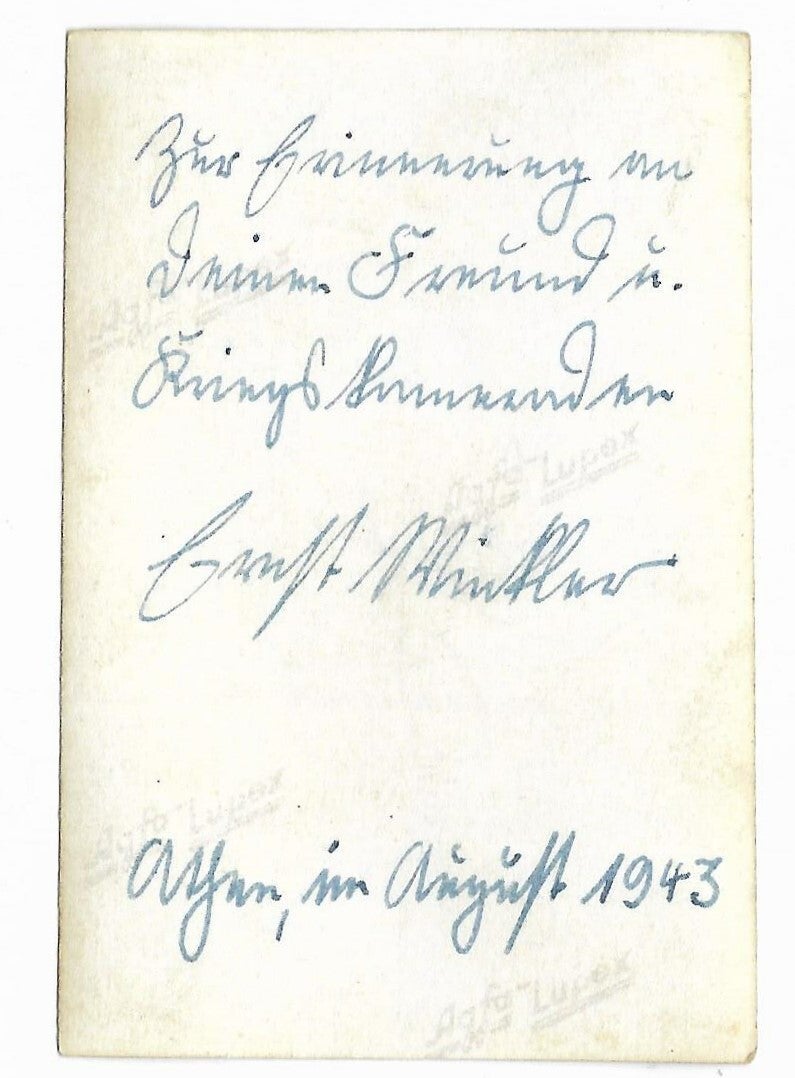 Zur Erinnerung an
deinen Freund u.
Kriegskameraden
Ernst Winkler
Athen, im August 1943
Agfa-Lupex
Agfa-Lupex
Agfa-Lupex
Agfa-Lupex